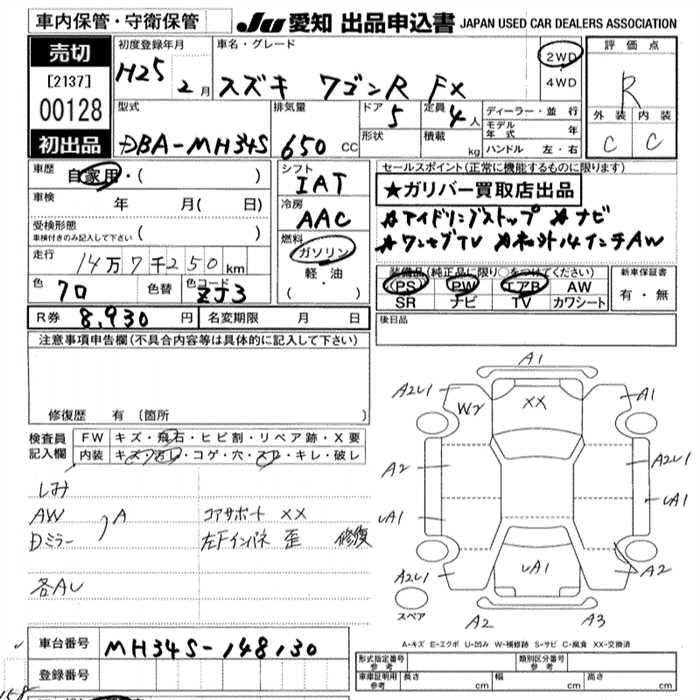 車内保管・守衛保管
JU 愛知 出品申込書 JAPAN USED CAR DEALERS ASSOCIATION
売切
[2137]
00128
初出品
初度登録年月
H25 2月
車名・グレード
スズキ ワゴンR FX
2WD
4WD
評価点
R
外装 内装
C C
型式
DBA-MH34S
排気量
650 CC
ドア
5
定員
4人
形状
積載
kg
ディーラー・並行
モデル年式 年
ハンドル 左・右
車歴
自家用・( )
車検
年 月( 日)
受検形態
車検付きのみ記入して下さい ( )
走行
14万7千250km
色
クロ
色替
色コード
ZJ3
シフト
IAT
冷房
AAC
燃料
ガソリン
軽・油
・( )
セールスポイント(正常に機能するものに限ります)
★ガリバー買取店出品
★アイドリングストップ ★ナビ
★ワンセグTV ★社外14インチAW
装備品(純正品に限り○をつけてください)
PS PW エアB AW
SR ナビ TV カワシート
新車保証書
有・無
R券 8,930円
名変期限 月 日
後日品
注意事項申告欄(不具合内容等は具体的に記入して下さい)
修復歴 有 (箇所 )
検査員記入欄
FW キズ・飛石・ヒビ割・リペア跡・X要
内装 キズ・汚レ・コゲ・穴・スレ・キレ・破レ
しみ
AW
Dミラー
A
コアサポート XX
左Fインパネ 歪 修復
各AU
A1
A2U1
W2
XX
A1
A2
A2U1
UA1
UA1
A2U1
UA1
A2
スペア
A2
A3
A-キズ E-エクボ U-凹み W-補修跡 S-サビ C-腐食 XX-交換済
車台番号
MH34S-148130
登録番号
型式指定番号 参考
類別区分番号 参考
車証明用 参考
長さ cm
幅 cm
高さ cm